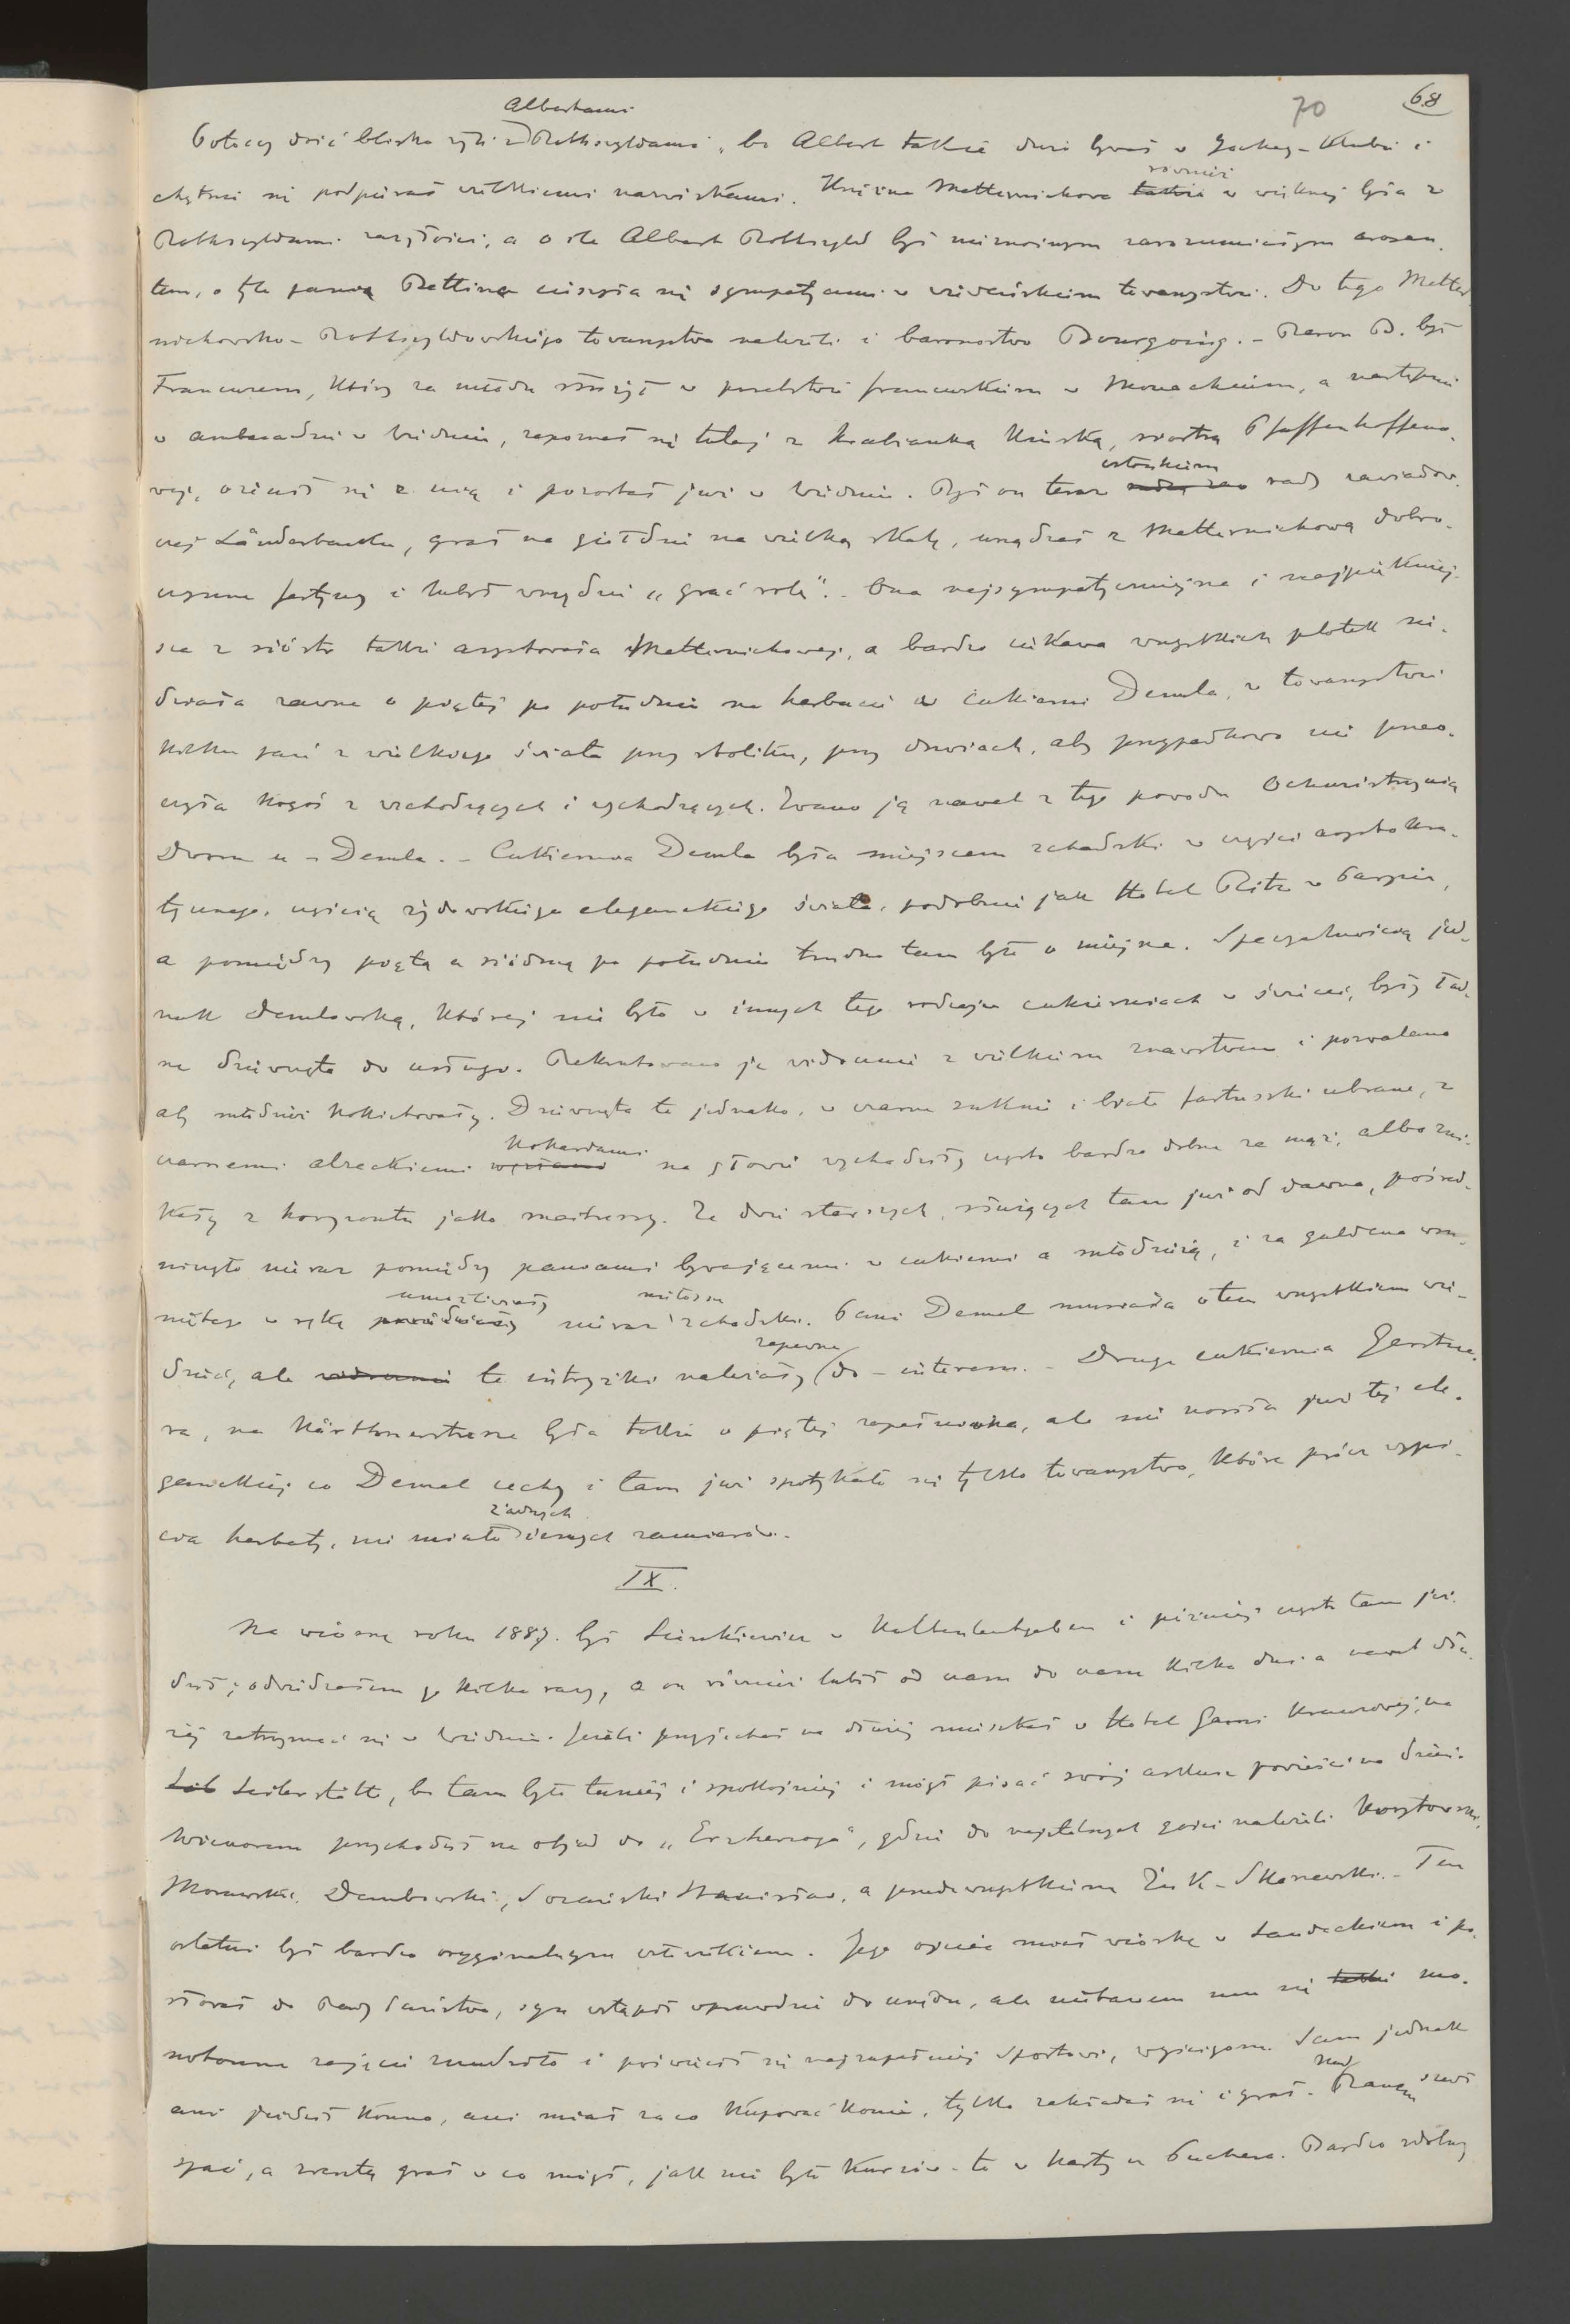 70 68
Albertami
Potoccy dość blisko żyli z Rothszyldami, bo Albert także dużo bywał w Jockey-Klubie i
chętnie się podpierał wielkiemi nazwiskami. Księżna Metternichowa także również w wielkiej była z
Rothszyldami zażyłości, a o ile Albert Rothszyld był nieznośnym zarozumiałym arogan-
tem, o tyle żona Bettina cieszyła się sympatyami w wiedeńskiem towarzystwie. Do tego Metter-
nichowsko-Rothszyldowskiego towarzystwa należeli i baronostwo Bourgoing. - Baron B. był
Francuzem, który za młodu służył w poselstwie francuskiem w Monachium, a następnie
w ambasadzie w Wiedniu, zapoznał się tutaj z hrabianką Kinską, siostrą Pfaffenhoffeno-
wej, ożenił się z nią i pozostał już w Wiedniu. Był on teraz członkiem rady zawiadow-
czej Länderbanku, grał na giełdzie na wielką skalę, urządzał z Metternichową dobro-
czynne festyny i lubił wszędzie „grać rolę". - Ona najsympatyczniejsza i najpiękniej-
sza z sióstr także asystowała Metternichowej, a bardzo ciekawa wszystkich plotek sie-
działa zawsze o piątej po południu na herbacie w cukierni Demla, w towarzystwie
kilku pań z wielkiego świata przy stoliku, przy drzwiach, aby przypadkowo nie przeo-
czyła kogoś z wchodzących i wychodzących. Zwano ją nawet z tego powodu Ochmistrzynią
Dworu u - Demla. - Cukiernia Demla była miejscem schadzki w części arystokra-
tycznego, częścią żydowskiego eleganckiego świata, podobnie jak Hotel Ritz w Paryżu,
a pomiędzy piątą a siódmą po południu trudno tam było o miejsce. Specyalnością jed-
nak demlowską, której nie było w innych tego rodzaju cukierniach w świecie, były ład-
ne dziewczęta do usługi. Rekrutowano je widocznie z wielkiem znawstwem i pozwalano
aby młodzież kokietowały. Dziewczęta te jednako, w czarne suknie i białe fartuszki ubrane, z
czarnemi alzackiemi kokardami na głowie wychodziły często bardzo dobrze za mąż, albo zni-
kały z horyzontu jako maitressy. Ze dwie starszych, służących tam już od dawna, pośred-
niczyło nieraz pomiędzy paniami bywającemi w cukierni a młodzieżą, i za guldena wsu-
niętego w rękę umożliwiały nieraz miłosne schadzki. Pani Demel musiała o tem wszystkiem wie-
dzieć, ale widocznie te intryżki należały zapewne do - interesu. - Druga cukiernia Gerstne-
ra, na Kärthnerstrasse była także o piątej zapełniona, ale nie nosiła już tej ele-
ganckiej co Demel cechy i tam już spotykało się tylko towarzystwo, które prócz wypi-
cia herbaty, nie miało żadnych innych zamiarów.
IX.
Na wiosnę roku 1887. był Sienkiewicz w Kaltenleutgeben i później często tam jeź-
dził; odwiedzałem go kilka razy, a on również lubił od czasu do czasu kilka dni a nawet dłu-
żej zatrzymać się w Wiedniu. Jeżeli przyjechał na dłużej mieszkał w Hotel Garni Krauzowej, na
Seilerstätte, bo tam było taniej i spokojniej i mógł pisać swój arkusz powieści na dzień.
Wieczorem przychodził na obiad do „Erzherzoga", gdzie do najstalszych gości należeli Korytowski,
Morawski, Dembowski, Stanisław, a przedewszystkiem Żuk-Skarszewski. - Ten
ostatni był bardzo oryginalnym człowiekiem. Jego ojciec miał wioskę w Sandeckiem i po-
słował do Rady Państwa, syn wstąpił wprawdzie do urzędu, ale niebawem mu się mo-
notonne zajęcie znudziło i poświęcił się najzupełniej sportowi, wyścigom. Sam jednak
ani jeździł konno, ani miał za co kupować konie, tylko zakładał się i grał. Nad Ranem szedł
spać, a zresztą grał w co mógł, jak nie było kursów - to w karty u Puchera. Bardzo zdolny